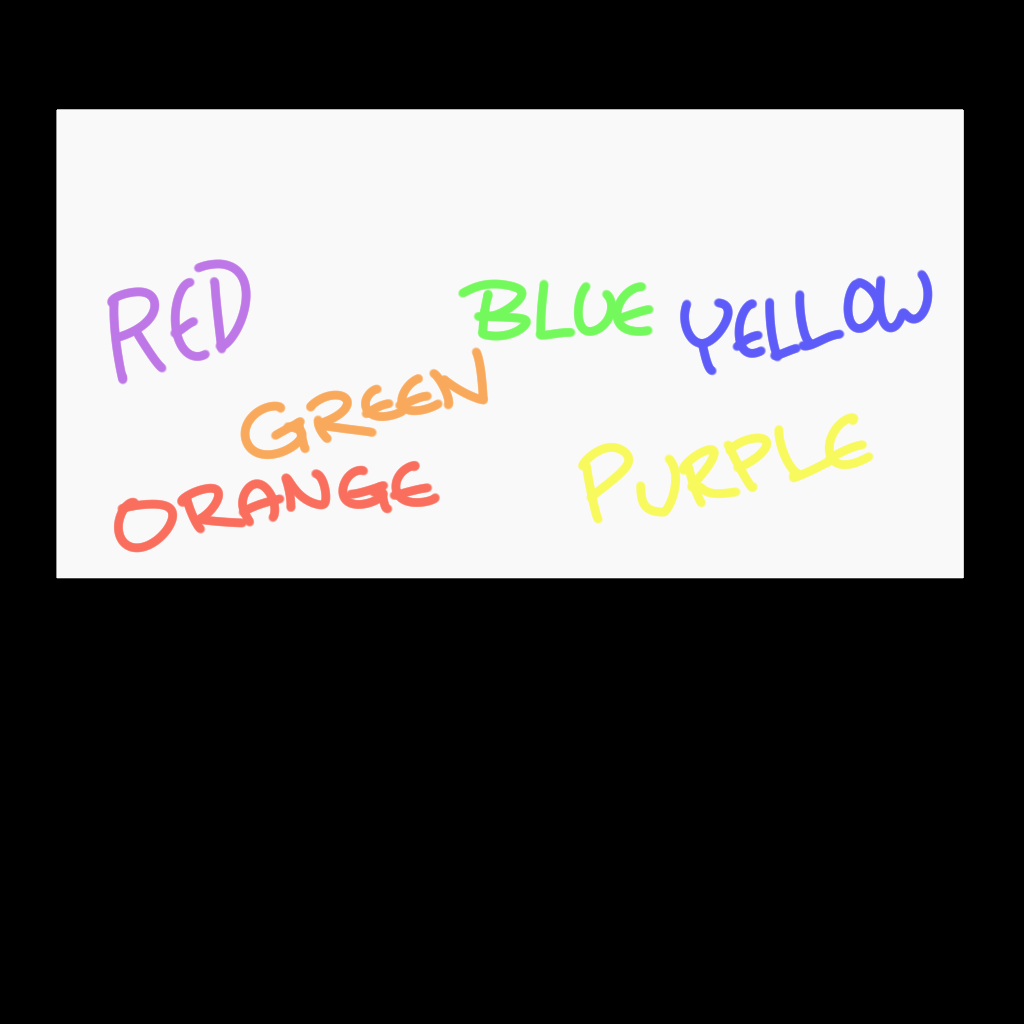 RED BLUE YELLOW
GREEN
ORANGE PURPLE